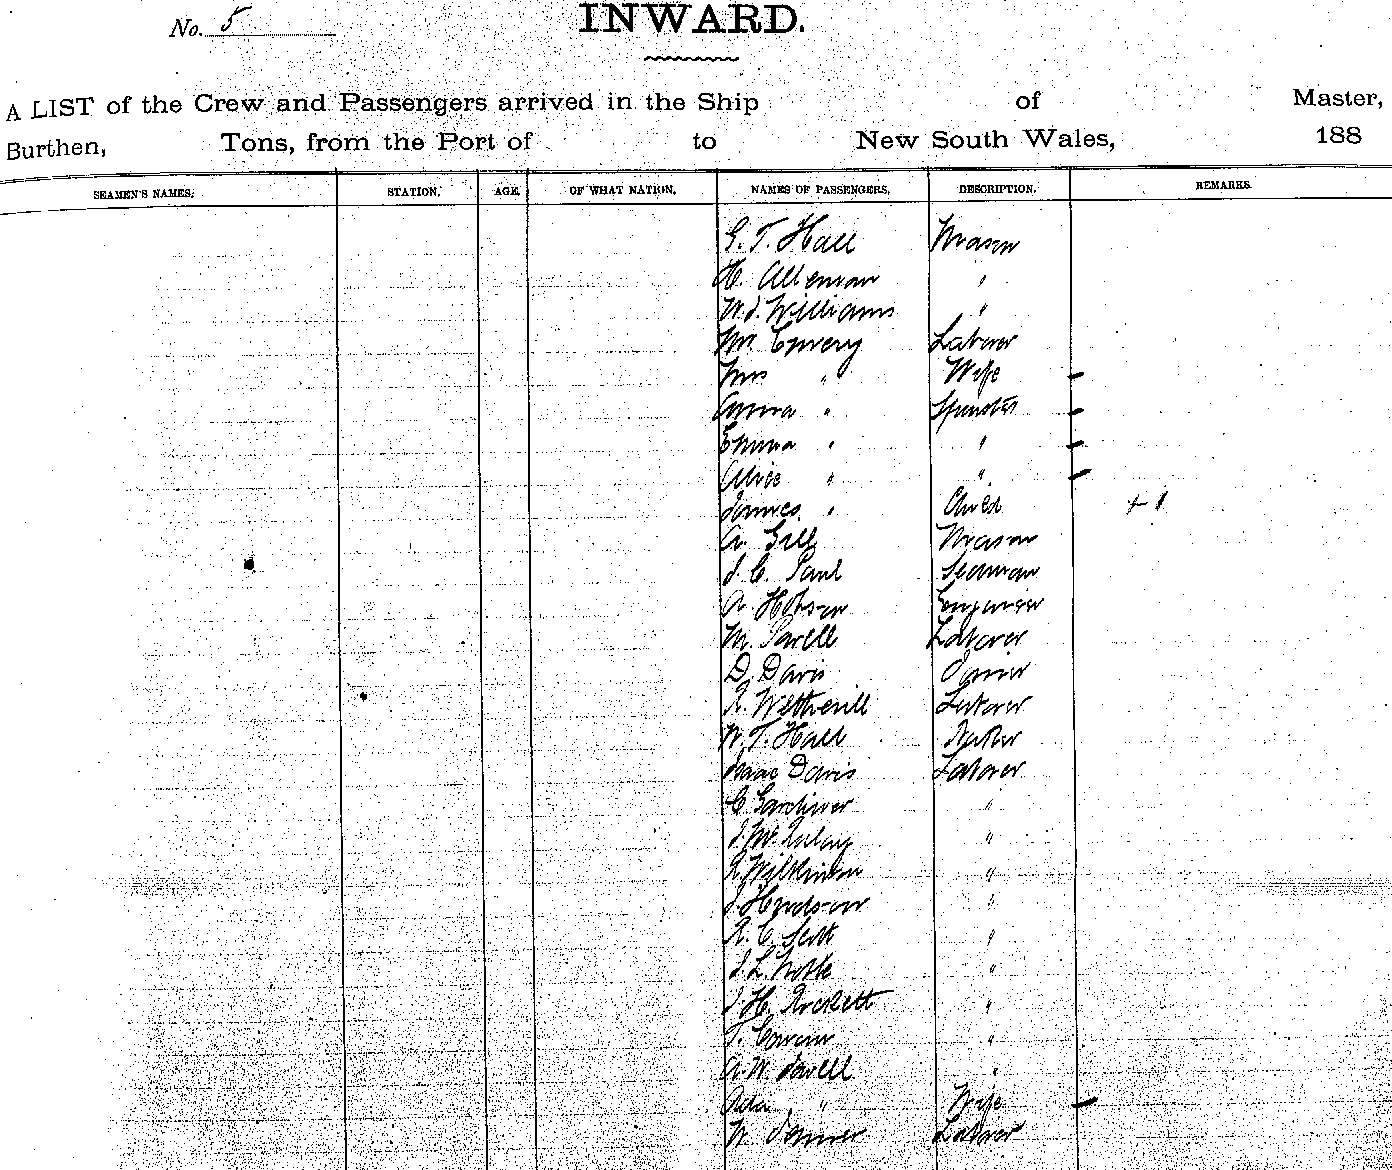 No. 5
INWARD.
A LIST of the Crew and Passengers arrived in the Ship of Master,
Burthen, Tons, from the Port of to New South Wales, 188
SEAMEN'S NAMES. STATION. AGE. OF WHAT NATION. NAMES OF PASSENGERS. DESCRIPTION. REMARKS.
G. T. Hall Mason
H. "
W. J. Williams "
Wm. Laborer
Mrs " Wife
Anna " Spinster
Emma " "
Alice " "
James " Child + 1
A. Gill Mason
J. C. Paul Seaman
A. Hobson
M. Powell Laborer
D. Davis
R. Wetherill Laborer
W. T. Hall
Isaac Davis Laborer
C. Gardiner "
J. "
R. Wilkinson "
J. "
R. C. Scott "
J. L. "
J. H. "
T. "
A. W. "
Ada " Wife
W. Laborer